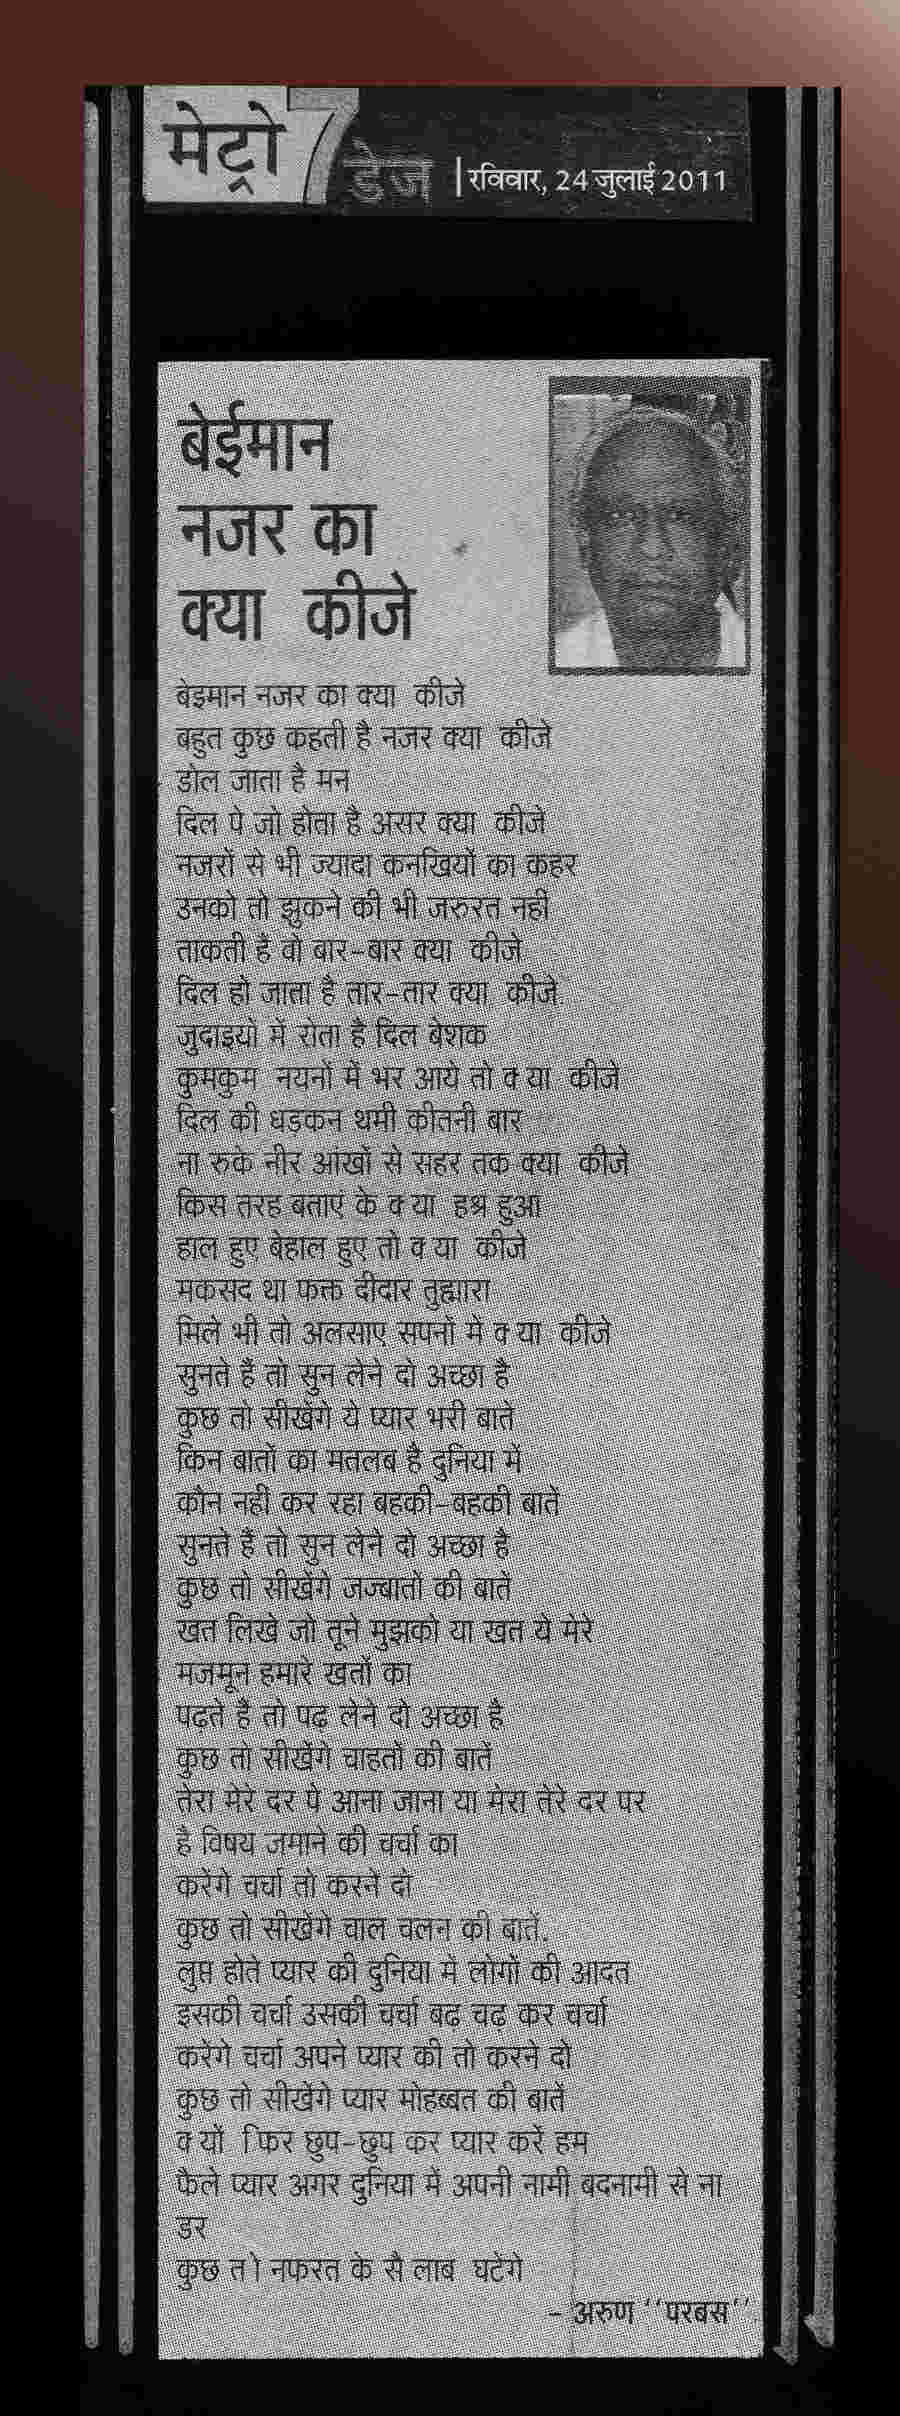 मेट्रो 7 डेज | रविवार, 24 जुलाई 2011
बेईमान
नजर का
क्या कीजे
बेइमान नजर का क्या कीजे
बहुत कुछ कहती है नजर क्या कीजे
डोल जाता है मन
दिल पे जो होता है असर क्या कीजे
नजरों से भी ज्यादा कनखियों का कहर
उनको तो झुकने की भी जरुरत नहीं
ताकती हैं वो बार-बार क्या कीजे
दिल हो जाता है तार-तार क्या कीजे
जुदाइयो में रोता है दिल बेशक
कुमकुम नयनों में भर आये तो क्या कीजे
दिल की धड़कन थमी कीतनी बार
ना रुके नीर आंखों से सहर तक क्या कीजे
किस तरह बताएं के क्या हश्र हुआ
हाल हुए बेहाल हुए तो क्या कीजे
मकसद था फक्त दीदार तुह्मारा
मिले भी तो अलसाए सपनों में क्या कीजे
सुनते हैं तो सुन लेने दो अच्छा है
कुछ तो सीखेंगे ये प्यार भरी बाते
किन बातों का मतलब है दुनिया में
कौन नही कर रहा बहकी-बहकी बातें
सुनते हैं तो सुन लेने दो अच्छा है
कुछ तो सीखेंगे जज्बातों की बातें
खत लिखे जो तूने मुझको या खत ये मेरे
मजमून हमारे खतों का
पढ़ते हैं तो पढ़ लेने दो अच्छा है
कुछ तो सीखेंगे चाहतों की बातें
तेरा मेरे दर पे आना जाना या मेरा तेरे दर पर
है विषय जमाने की चर्चा का
करेंगे चर्चा तो करने दो
कुछ तो सीखेंगे चाल चलन की बातें.
लुप्त होते प्यार की दुनिया में लोगों की आदत
इसकी चर्चा उसकी चर्चा बढ़ चढ़ कर चर्चा
करेंगे चर्चा अपने प्यार की तो करने दो
कुछ तो सीखेंगे प्यार मोहब्बत की बातें
क्यों फिर छुप-छुप कर प्यार करें हम
फैले प्यार अगर दुनिया में अपनी नामी बदनामी से ना
डर
कुछ तो नफरत के सैलाब घटेगे
- अरुण ‘‘परबस’’